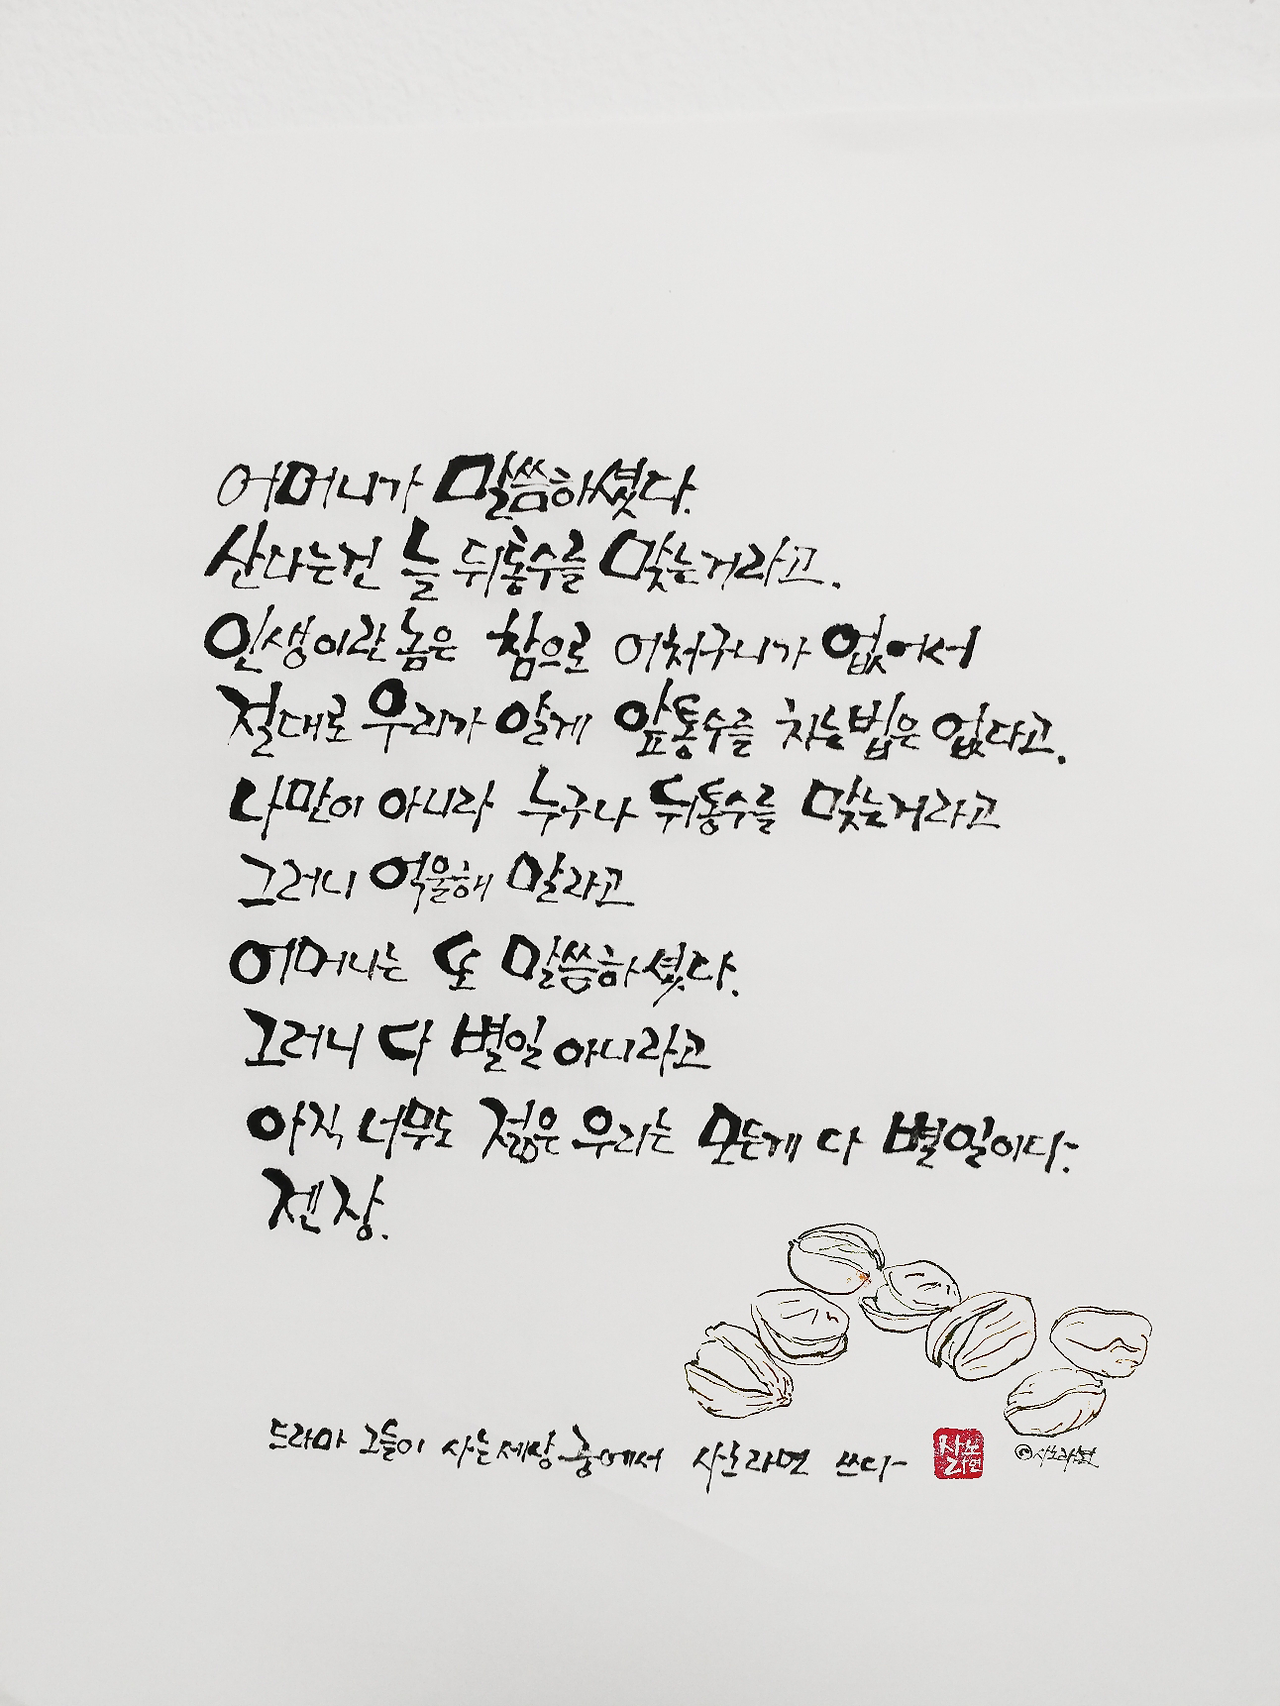 어머니가 말씀하셨다.
산다는건 늘 뒤통수를 맞는거라고.
인생이란 놈은 참으로 어처구니가 없어서
절대로 우리가 알게 앞통수를 치는법은 없다고.
나만이 아니라 누구나 뒤통수를 맞는거라고
그러니 억울해 말라고
어머니는 또 말씀하셨다.
그러니 다 별일 아니라고
아직 너무도 젊은 우리는 모든게 다 별일이다.
젠장.
드라마 그들이 사는세상 중에서 사노라면 쓰다
사노라면
©사노라면